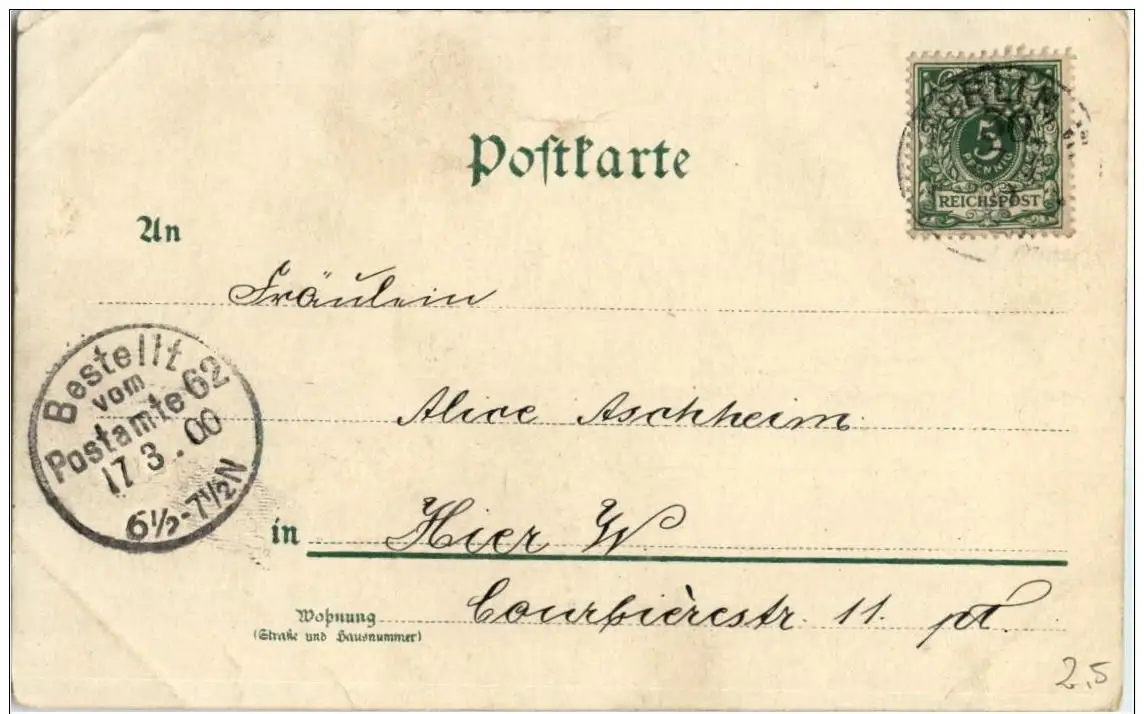 Postkarte
BERLIN
5
PFENNIG
REICHSPOST
An
Fräulein
Alice Aschheim
Bestellt
vom
Postamte 62
17 3 . 00
6½-7½N
in Hier W.
Wohnung Courbièrestr. 11. pt.
(Straße und Hausnummer)
2,5